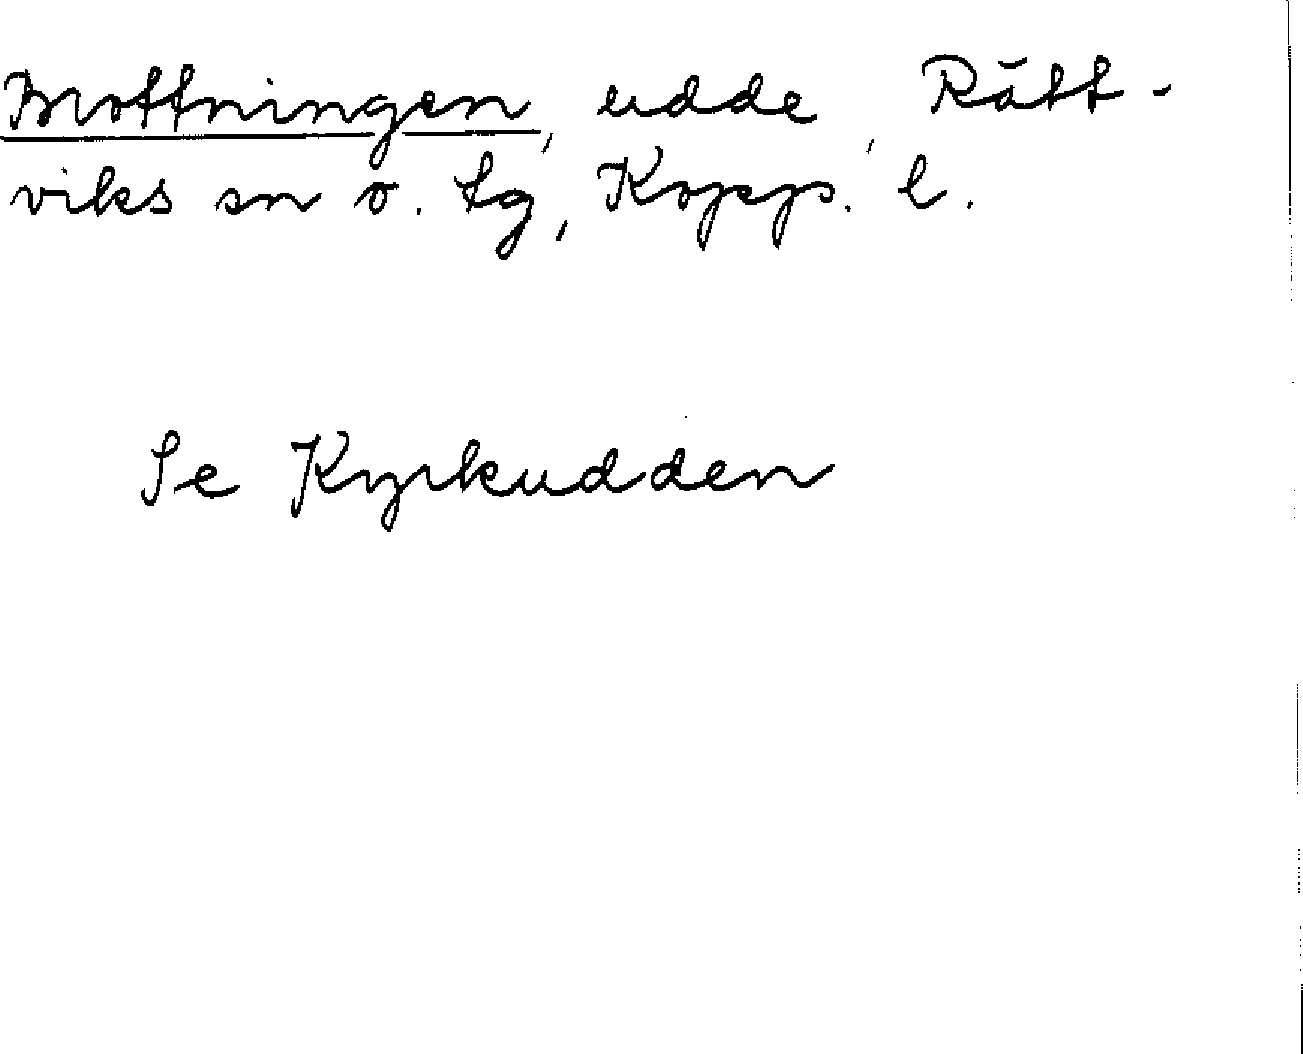 Brottningen, udde, Rätt-
viks sn o. tg, Kopp. l.
Se Kyrkudden